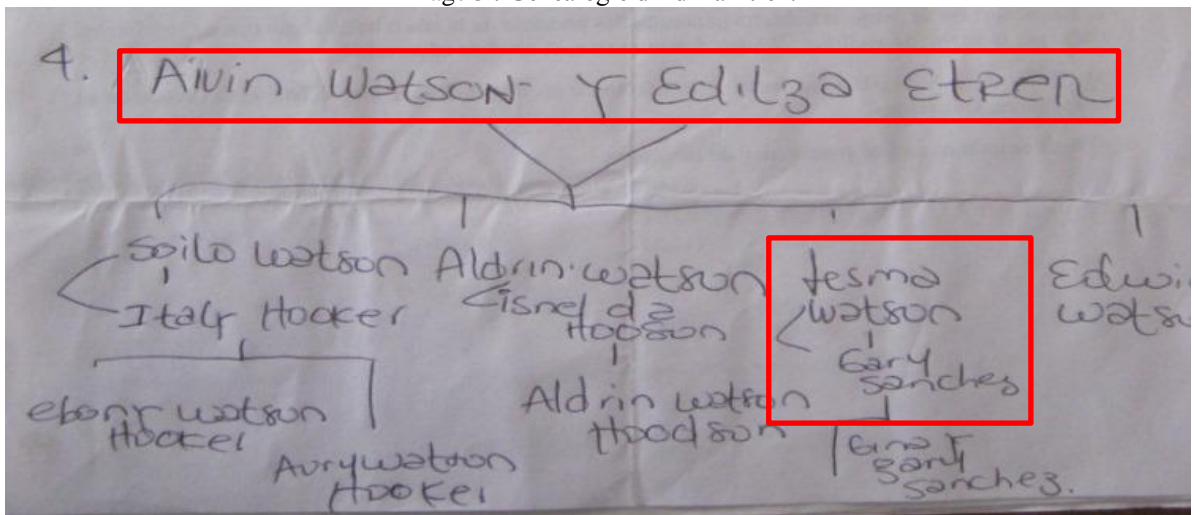 4. Alvin Watson Y Edilza Etren
Soilo Watson
Italy Hooker
ebony watson
Hooker
Aury watson
Hooker
Aldrin watson
Isnelda
Hodson
Aldrin watson
Hoodson
Jesma
Watson
Gary
Sanches
Gina Y
Gary
Sanchez.
Edwi
Wats